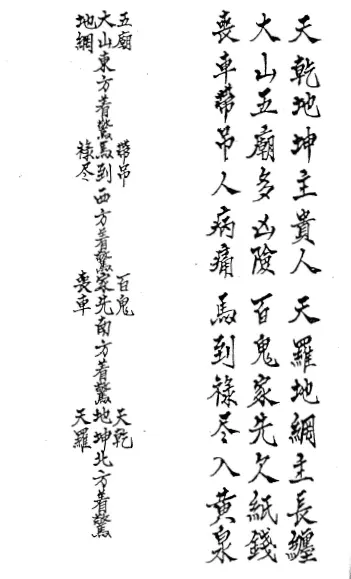 天乾地坤主貴人 天羅地網主長纏
大山五廟多凶險 百鬼家先欠紙錢
喪車帶吊人病痛 馬到祿尽入黃泉
五廟
大山
地網
東方着驚
帶吊
馬到
祿尽
西方着驚
百鬼
家先
喪車
南方着驚
天乾
地坤
天羅
北方着驚